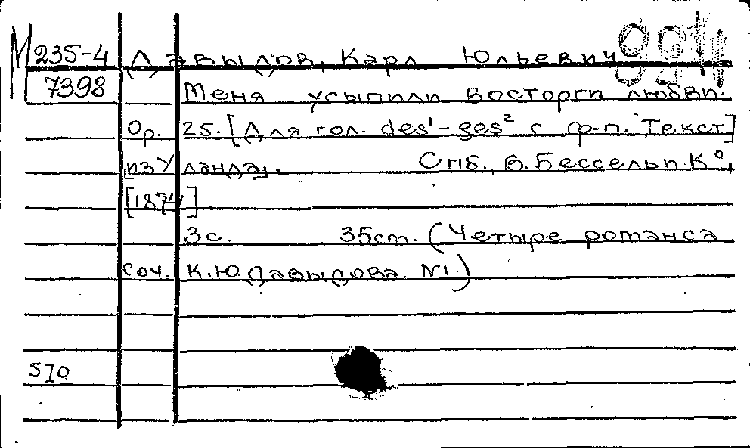 М 235-4 Давыдов, Карл Юльевич
7398 Меня усыпили восторги любви.
Ор. 25. [Для гол. des¹-ges² с ф-п. Текст]
из Уланда.. Спб., В. Бессель и К⁰,
[1874].
3с. 35сm. (Четыре романса
соч. К.Ю. Давыдова. №1.)
510